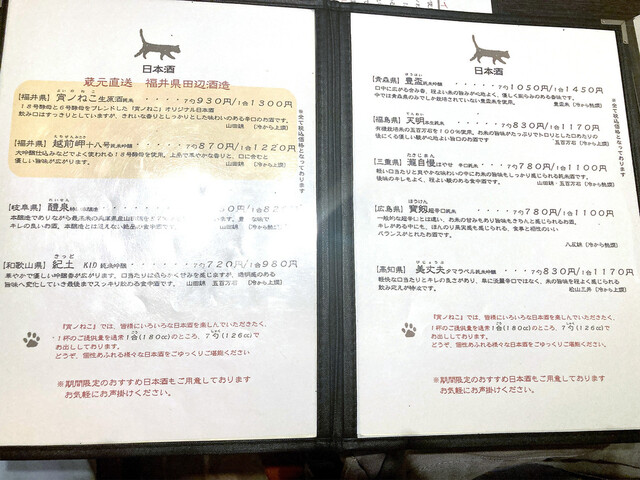 日本酒
蔵元直送 福井県田辺酒造
よいのねこ
【福井県】宵ノねこ生原酒純米 ・・・・・7勺930円/1合1300円
18号酵母と6号酵母をブレンドした「宵ノねこ」オリジナル日本酒
飲み口はすっきりとしていますが、きれいな香りとしっかりとした味わいのある辛口のお酒です。
山田錦 〔冷から上燗〕
えちぜんみさき
【福井県】越前岬十八号純米吟醸・・・・7勺870円/1合1220円
大吟醸仕込みなどでよく使われる18号酵母を使用。上品で華やかな香りと、口に含むと
優しい旨味が広がります。 山田錦 〔冷から上燗〕
※全て税込価格となっております
れいせん
【岐阜県】醴泉
本醸造でありながら最高米の兵庫県産山田錦を
キレの良いお酒。本醸造とは思えない絶品の食中酒です。 山田錦 〔冷から上燗〕
きっど
【和歌山県】紀土 KID 純米吟醸 ・・・・・7勺720円/1合980円
華やかで優しい吟醸香が広がります。口当たりは柔らかく甘みを感じますが、透明感のある
旨味へ変化していき最後までスッキリ飲める食中酒です。 山田錦 五百万石 〔冷から上燗〕
『宵ノねこ』では、皆様にいろいろな日本酒を楽しんでいただきたく、
1杯のご提供量を通常1合(180cc)のところ、7勺(126cc)で
お出ししております。
どうぞ、個性あふれる様々な日本酒をごゆっくりご堪能ください
※期間限定のおすすめ日本酒もご用意しております
お気軽にお声掛けください。
日本酒
ほうはい
【青森県】豊盃純米吟醸 ・・・・・7勺1050円/1合1450円
口中に広がる甘み香、程よい米の旨みが心地よく、優しく膨らみのある香味です。
中では青森県のみでしか栽培されていない豊盃米を使用。 豊盃米 〔冷から熱燗〕
てんめい
【福島県】天明本生純米 ・・・・・7勺830円/1合1170円
有機栽培米の五百万石を100%使用。お米の旨味がたっぷりでトロリとした口あたりの
後にくる優しい酸が心地よい旨口のお酒です。 五百万石 〔冷から上燗〕
たきじまん
【三重県】瀧自慢はやせ 辛口純米・・・・7勺780円/1合1100円
軽い口当たりと爽やかな味わいの中にお米の旨味をしっかり感じられる純米酒です。
後味のキレもよく、程よい酸のある食中酒です。 山田錦 五百万石 〔冷から上燗〕
ほうけん
【広島県】寶剱超辛口純米 ・・・・・7勺780円/1合1100円
一般的な超辛口にとはほい、お米の甘みをあり旨味もきちんと感じられるお酒。
キレがある中にも、ほんのり果実感も感じられる、食事と相性のいい
バランスがとれたお酒です。
八反錦 〔冷から熱燗〕
びじょうふ
【高知県】美丈夫タマラベル純米吟醸・・・7勺830円/1合1170円
軽快な口当たりとキレの良さがあり、単に淡麗辛口ではなく、米の旨味を程よく感じられる
飲み応えが特徴です。 松山三井 〔冷から上燗〕
※全て税込価格となっております
『宵ノねこ』では、皆様にいろいろな日本酒を楽しんでいただきたく、
1杯のご提供量を通常1合(180cc)のところ、7勺(126cc)で
お出ししております。
どうぞ、個性あふれる様々な日本酒をごゆっくりご堪能ください
※期間限定のおすすめ日本酒もご用意しております
お気軽にお声掛けください。